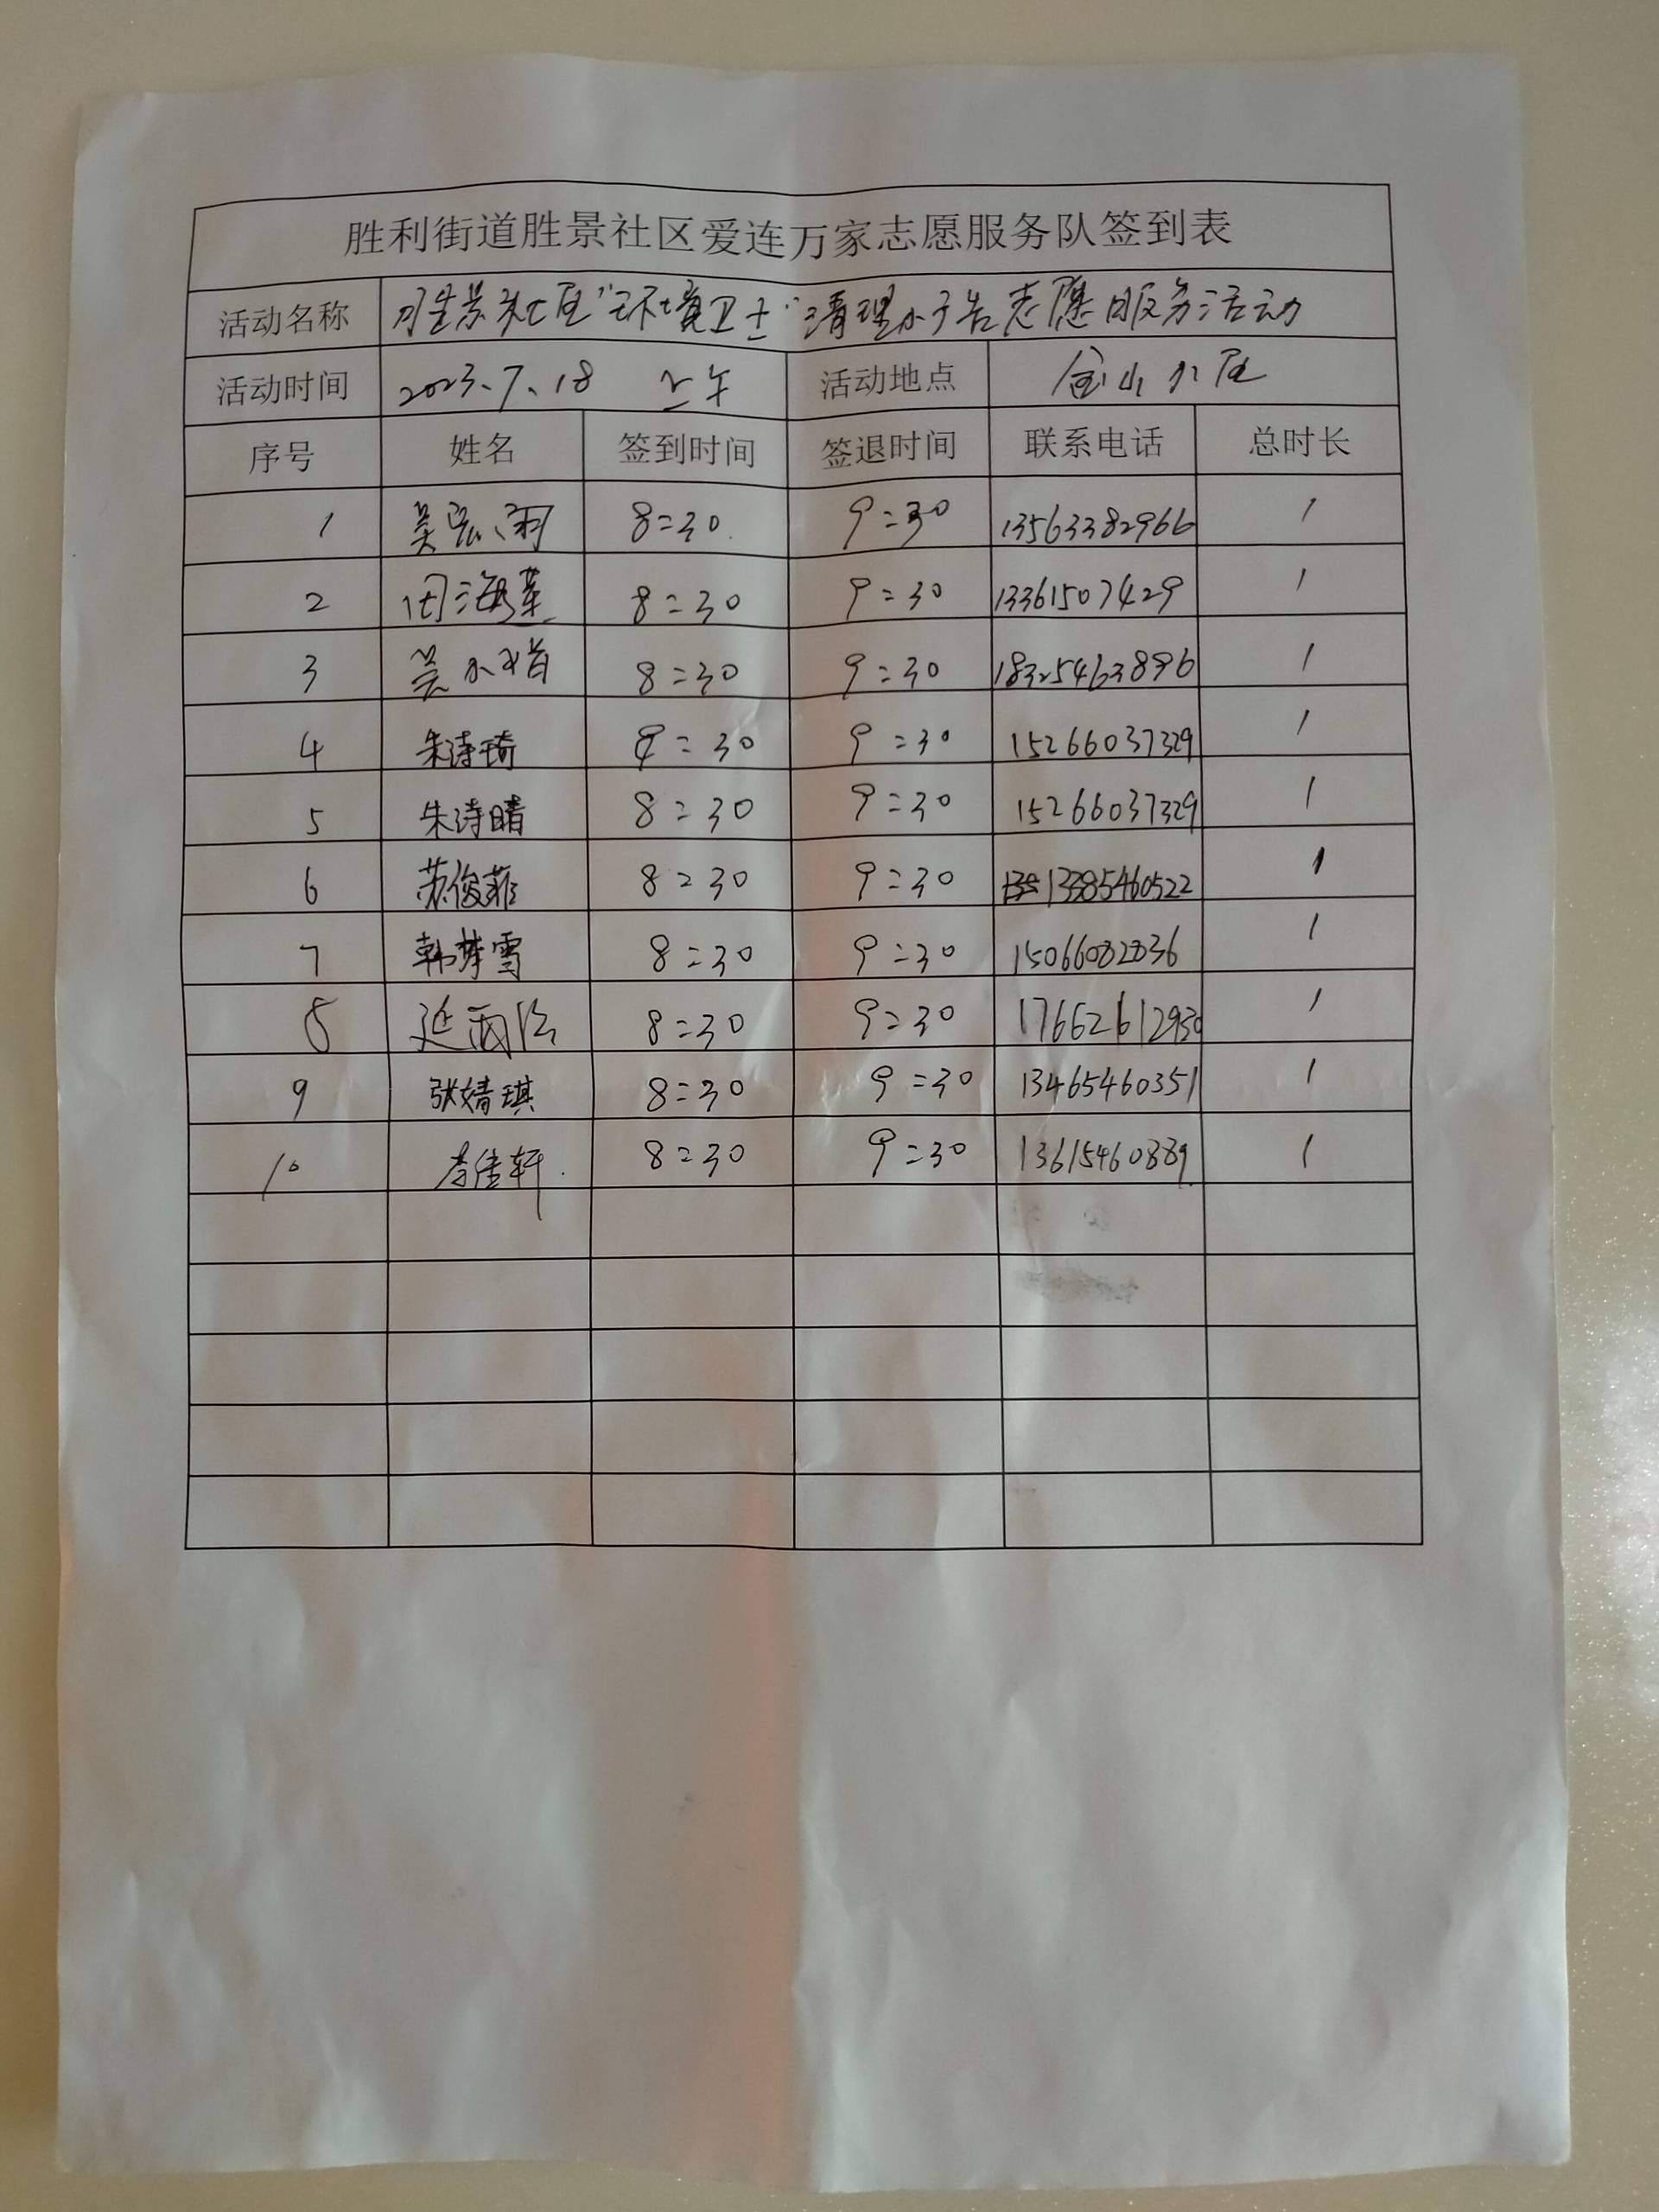 胜利街道胜景社区爱连万家志愿服务队签到表
活动名称 胜景社区“环境卫士”清理小广告志愿服务活动
活动时间 2023.7.18 上午 活动地点 金山小区
序号 姓名 签到时间 签退时间 联系电话 总时长
1 吴宏雨 8:30 9:30 13563382966 1
2 田海英 8:30 9:30 13361507429 1
3 吴小娟 8:30 9:30 18325463896 1
4 朱诗琦 8:30 9:30 15266037329 1
5 朱诗晴 8:30 9:30 15266037329 1
6 苏俊菲 8:30 9:30 13385460522 1
7 韩梦雪 8:30 9:30 1
8 8:30 9:30 17662612930 1
9 张婧琪 8:30 9:30 13465460351 1
10 李佳轩 8:30 9:30 13615460889 1